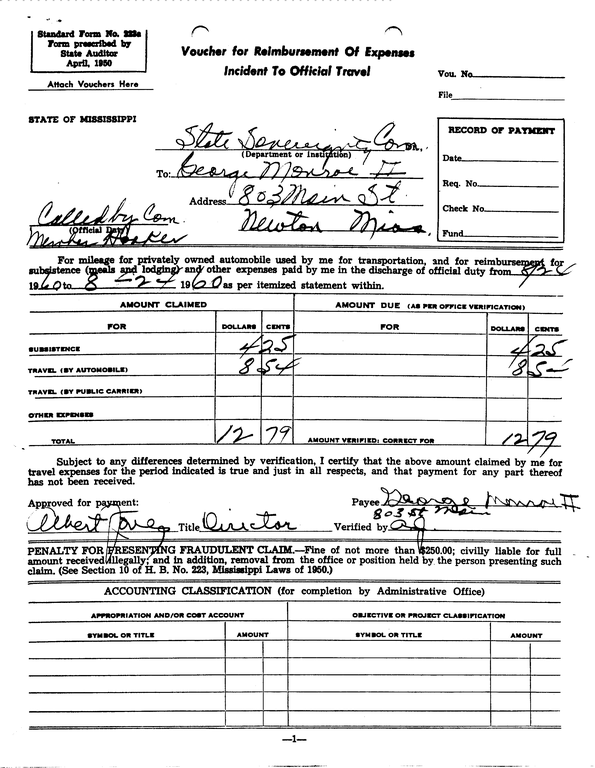 Standard Form No. 223a
Form prescribed by
State Auditor
April, 1950
Attach Vouchers Here
Voucher for Reimbursement Of Expenses
Incident To Official Travel
Vou. No.
File
STATE OF MISSISSIPPI
State Sovereignty Com DR.,
(Department or Institution)
To: George Monroe II
Address 803 Main St
Newton Miss
Called by Com.
(Official Duty)
Member Hooker
RECORD OF PAYMENT
Date
Req. No.
Check No.
Fund
For mileage for privately owned automobile used by me for transportation, and for reimbursement for
subsistence (meals and lodging) and other expenses paid by me in the discharge of official duty from 8/24
1960 to 8-24 1960 as per itemized statement within.
AMOUNT CLAIMED AMOUNT DUE (AS PER OFFICE VERIFICATION)
FOR DOLLARS CENTS FOR DOLLARS CENTS
SUBSISTENCE 4 25 4 25
TRAVEL (BY AUTOMOBILE) 8 54 8
TRAVEL (BY PUBLIC CARRIER)
OTHER EXPENSES
TOTAL 12 79 AMOUNT VERIFIED: CORRECT FOR 12 79
Subject to any differences determined by verification, I certify that the above amount claimed by me for
travel expenses for the period indicated is true and just in all respects, and that payment for any part thereof
has not been received.
Approved for payment: Payee George Monroe II
803 St Main
Albert Jones Title Director Verified by
PENALTY FOR PRESENTING FRAUDULENT CLAIM.—Fine of not more than $250.00; civilly liable for full
amount received illegally; and in addition, removal from the office or position held by the person presenting such
claim. (See Section 10 of H. B. No. 223, Mississippi Laws of 1950.)
ACCOUNTING CLASSIFICATION (for completion by Administrative Office)
APPROPRIATION AND/OR COST ACCOUNT OBJECTIVE OR PROJECT CLASSIFICATION
SYMBOL OR TITLE AMOUNT SYMBOL OR TITLE AMOUNT
—1—